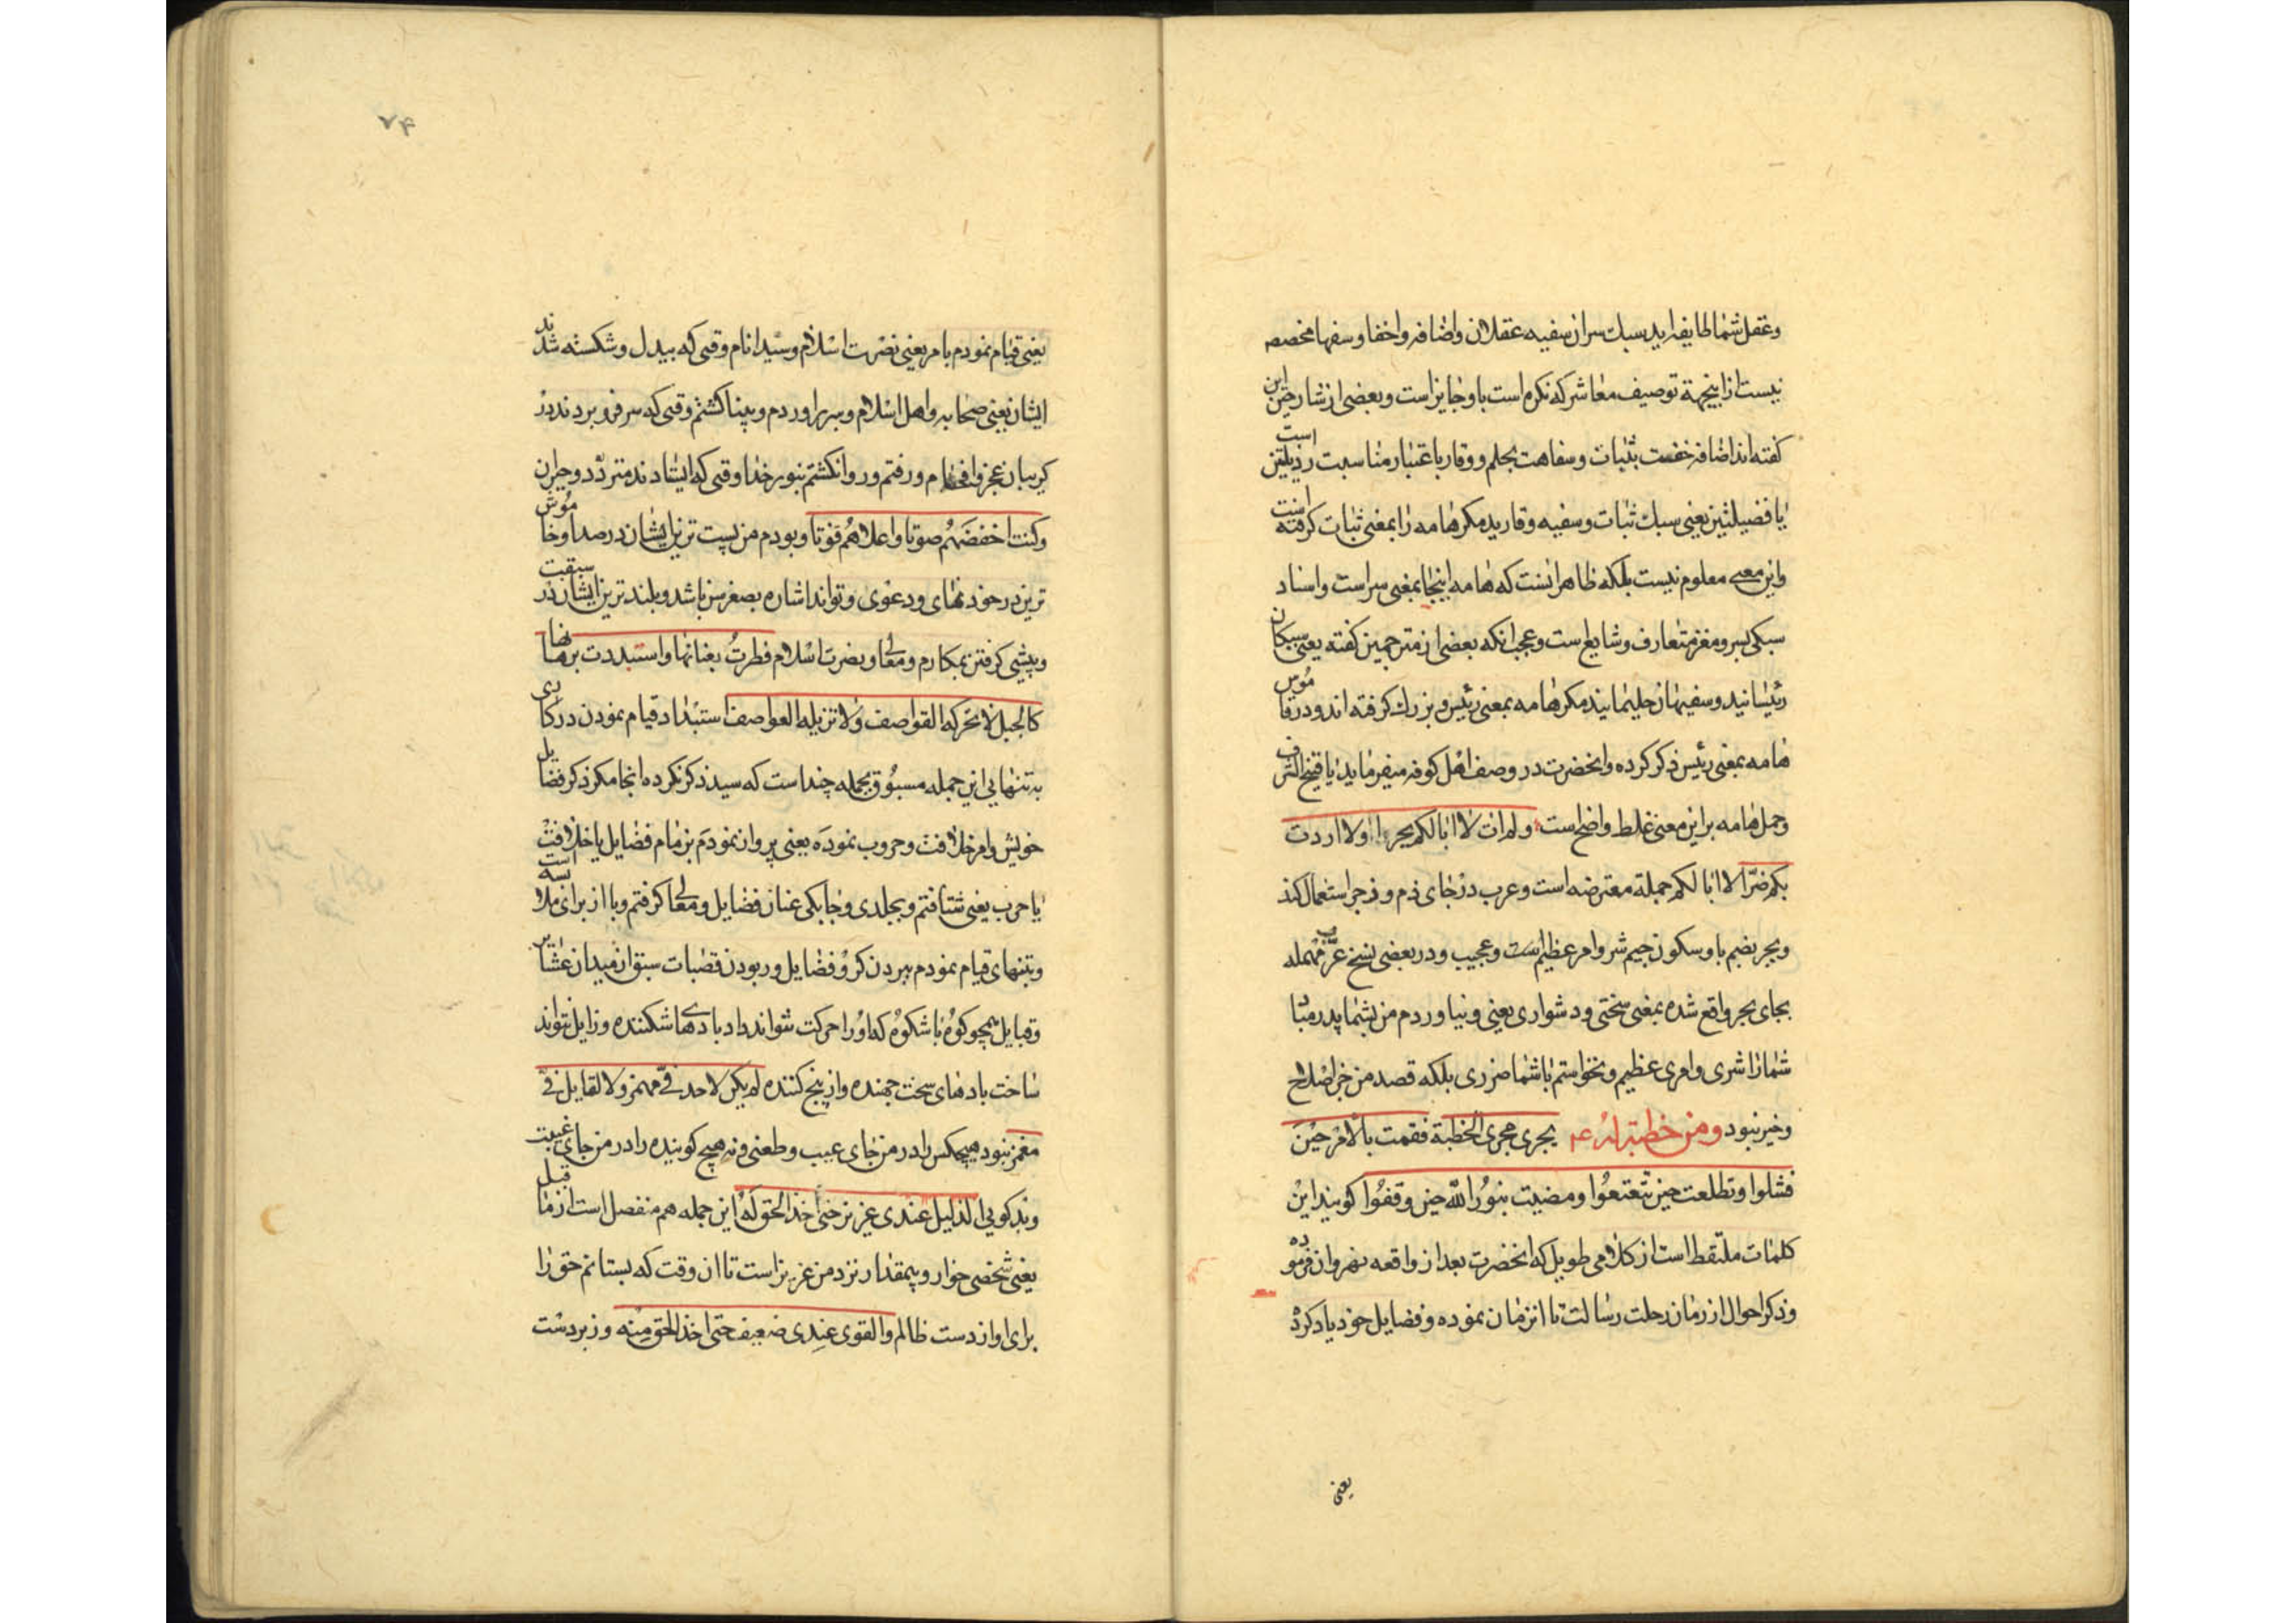 وعقل شما طایفه اید سبك سران سفیه عقلان واضافه واخفا وسفها مخصصه
نیست ازاینجهة توصیف معاشر که نکره است باو جایزاست وبعضی از شارحین این
کفته اند اضافه خفت بثبات وسفاهت بحلم ووقار باعتبار مناسبت رذیلتین است
یا فضیلتین یعنی سبك ثبات وسفیه وقارید مکر هامه را بمعنی ثبات کرفته است
واین معنی معلوم نیست بلکه ظاهر انست که هامه اینجا بمعنی سراست واسناد
سبکی بسر ومغز متعارف وشایع است وعجب انکه بعضی از مترجمین کفته یعنی سبکان
رئیسانید وسفیهان حلیمانید مکر هامه بمعنی رئیس وبزرك کرفته اند ودر قاموس
هامه بمعنی رئیس ذکر کرده وانحضرت در وصف اهل کوفه میفرماید یا
وحمل هامه براین معنی غلط واضح است ولم ات لا ابا لکم بجرا ولا اردت
بکم ضرّا لا ابا لکم جملة معترضه است وعرب در جای ذم وزجر استعمال کند
وبجر بضم با وسکون جیم شر وامر عظیم است وعجیب ودر بعضی نسخ مهمله
بجای بجر واقع شده بمعنی سختی ودشواری یعنی ونیاوردم من بشما پدر مبا
شمارا شری وامری عظیم ونخواستم باشما ضرری بلکه قصد من جز اصلاح
وخیر نبود ومن خطبة له ع یجری مجری الخطبة فقمت بالامر حین
فشلوا وتطلعت حین تتعتعوا ومضیت بنور الله حین وقفوا کویند این
کلمات ملتقط است از کلامی طویل که انحضرت بعد از واقعه نهروان فرموده
وذکر احوال از زمان رحلت رسالت تا انزمان نموده وفضایل خود یاد کرده
یعنی
۷۴
یعنی قیام نمودم بامر یعنی نصرت اسلام وسید انام وقتی که بیدل وشکسته شدند
ایشان یعنی صحابه واهل اسلام وسر براوردم وپیدا کشتم وقتی که سر فرو بردند در
کریبان عجز وافحام ورفتم وروان کشتم بنور خدا وقتی که ایستادند متردّد وحیران
وکنت اخفضهم صوتا واعلاهم فوتا وبودم من پست ترین ایشان در صدا وخاموش
ترین در خود نمای ودعوی وتواند اشاره بصغر سن باشد وبلند ترین ایشان در سبقت
وپیشی کرفتن بمکارم ومعالی ونصرت اسلام فطرت بعنانها واستبددت برهانها
کالجبل لا تحرکه القواصف ولا تزیله العواصف استبداد قیام نمودن در کاری
به تنهایی این جمله مسبوق بجمله چند است که سید ذکر نکرده انجا مکر ذکر فضایل
خویش وامر خلافت وحروب نموده یعنی پرواز نمودم بزمام فضایل یا خلافت است
یا حرب یعنی شتافتم وبجلدی وچابکی عنان فضایل ومعالی کرفتم وبا از برای ملابسه
وبتنهای قیام نمودم ببردن کرو فضایل وربودن قصبات سبق از میدان عشایر
وقبایل همچو کوه باشکوه که اورا حرکت نتواند داد بادهای شکننده وزایل نتواند
ساخت بادهای سخت جهنده واز بیخ کننده لم یکن لاحد فیّ مهمز ولا لقایل فیّ
مغمز نبود هیچکس را در من جای عیب وطعنی ونه هیچ کوینده را در من جای غیبت
وبدکویی الذلیل عندی عزیز حتی اخذ الحق له این جمله هم منفصل است از ما قبل
یعنی شخصی خوار وبیمقدار نزد من عزیز است تا ان وقت که بستانم حق را
برای او از دست ظالم والقوی عندی ضعیف حتی اخذ الحق منه وزبردست